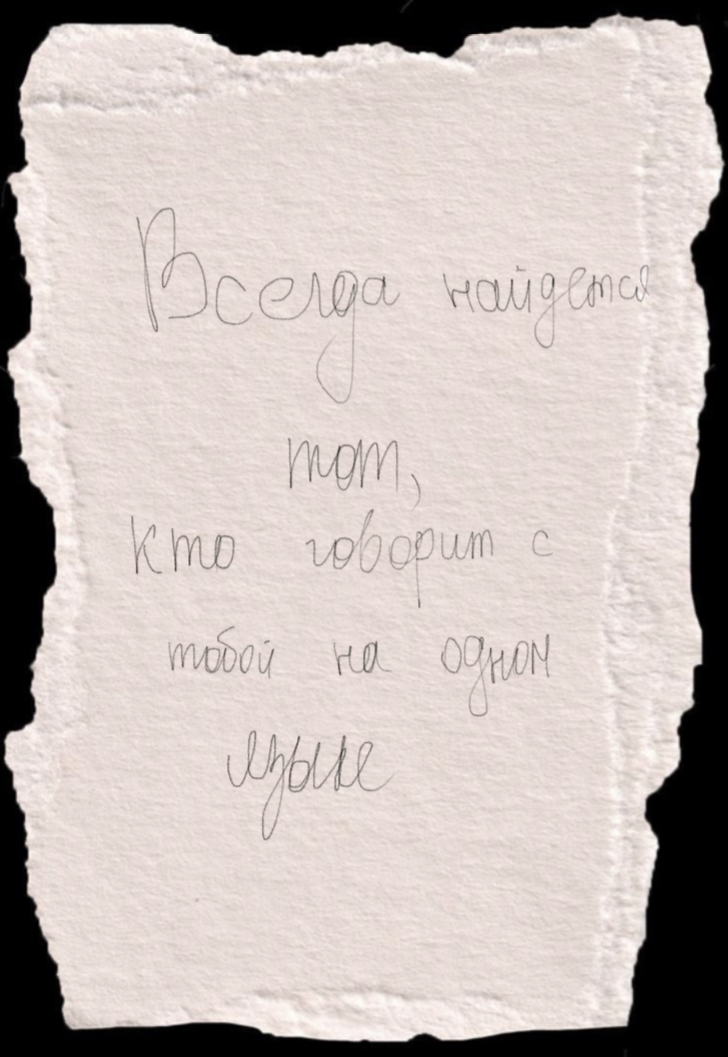 Всегда найдется
тот,
кто говорит с
тобой на одном
языке